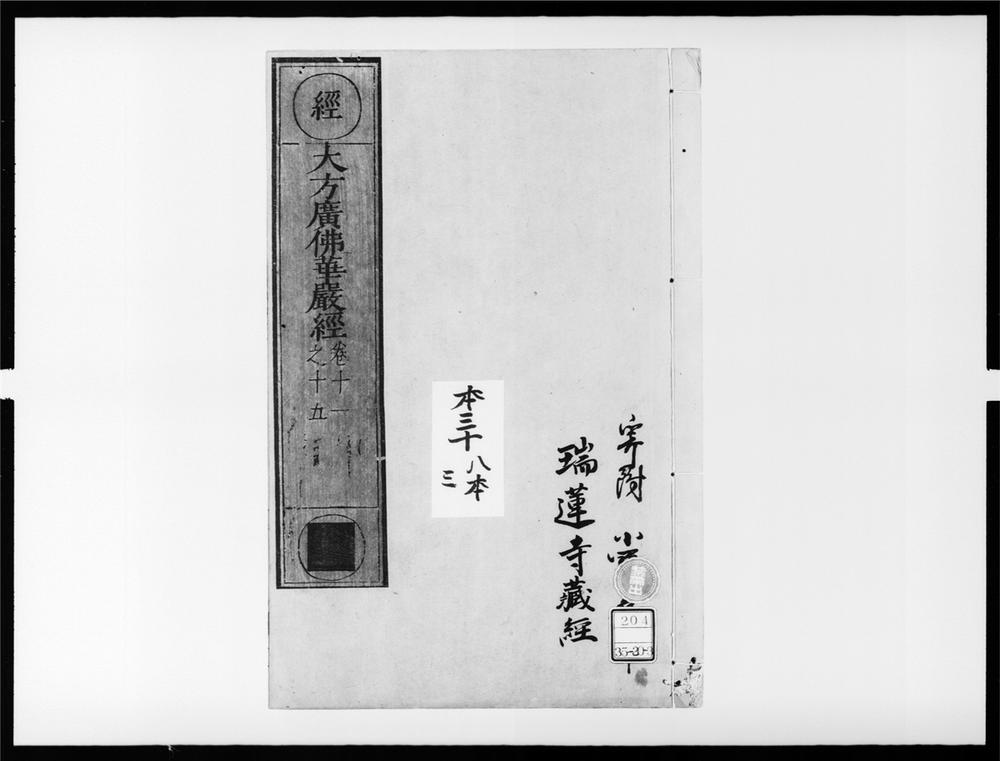 經
大方廣佛華嚴經
卷十一
之十五
本三十八本
三
寄附 小
瑞蓮寺藏經
禁帶出
204
35-20-3